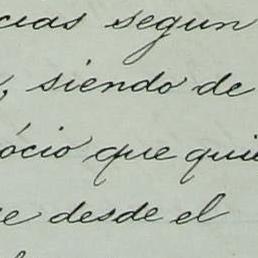 cias segun
, siendo de
ócio que quie
e desde el